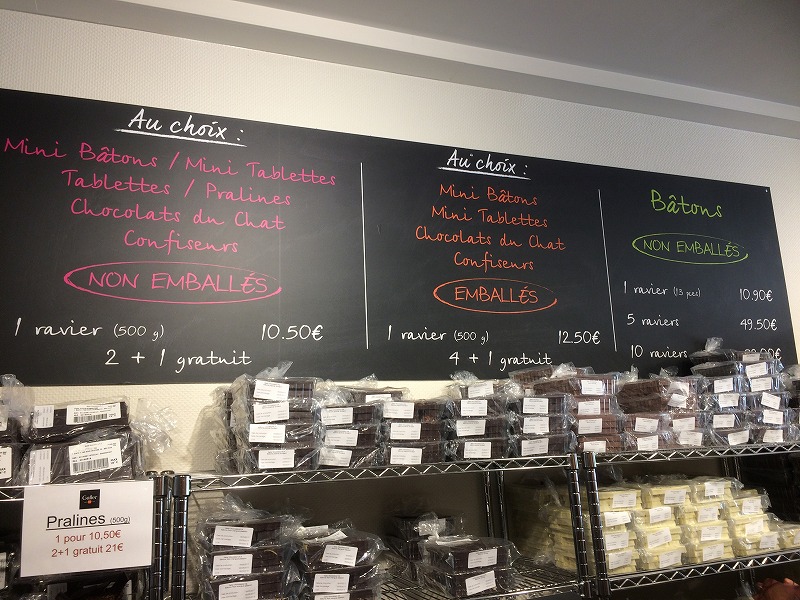 Au choix :
Mini Bâtons / Mini Tablettes
Tablettes / Pralines
Chocolats du Chat
Confiseurs
NON EMBALLÉS
1 ravier (500 g) 10.50€
2 + 1 gratuit
Au choix :
Mini Bâtons
Mini Tablettes
Chocolats du Chat
Confiseurs
EMBALLÉS
1 ravier (500 g) 12.50€
4 + 1 gratuit
Bâtons
NON EMBALLÉS
1 ravier (13 pces) 10.90€
5 raviers 49.50€
10 raviers
Galler
Pralines (500g)
1 pour 10,50€
2+1 gratuit 21€